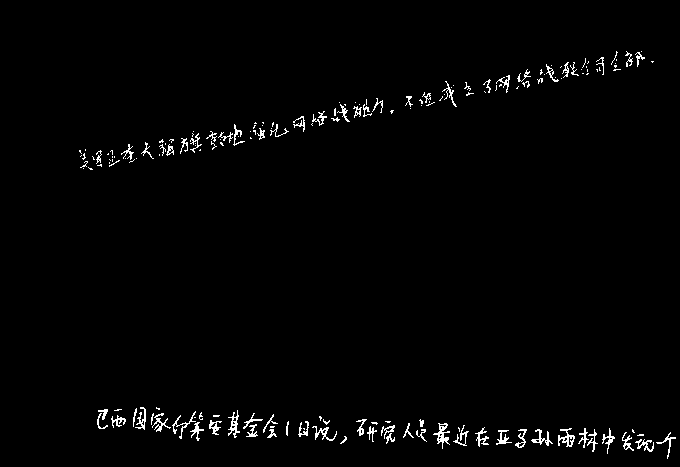 美国正在大张旗鼓地强化网络战能力,不但成立了网络战联合司令部,
巴西国家印第安基金会1日说,研究人员最近在亚马孙雨林中发现一个